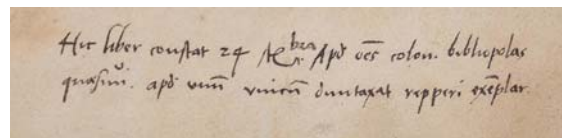 Hic liber constat 24 Apud oēs colon. bibliopolas
quasiui. apud unū unicū duntaxat repperi exēplar